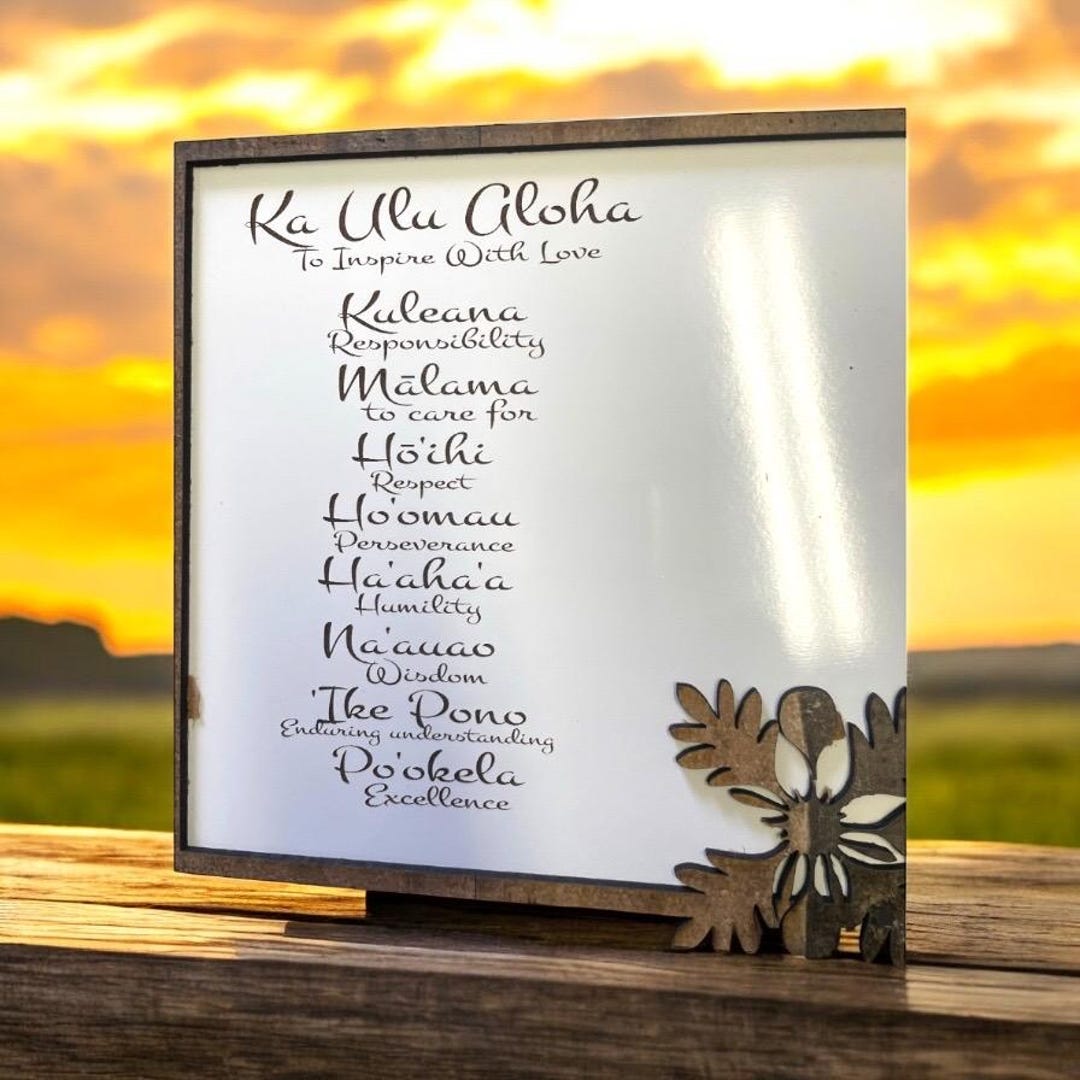 Ka Ulu Aloha
To Inspire With Love
Kuleana
Responsibility
Mālama
to care for
Hō'ihi
Respect
Ho'omau
Perseverance
Ha'aha'a
Humility
Na'auao
Wisdom
'Ike Pono
Enduring understanding
Po'okela
Excellence